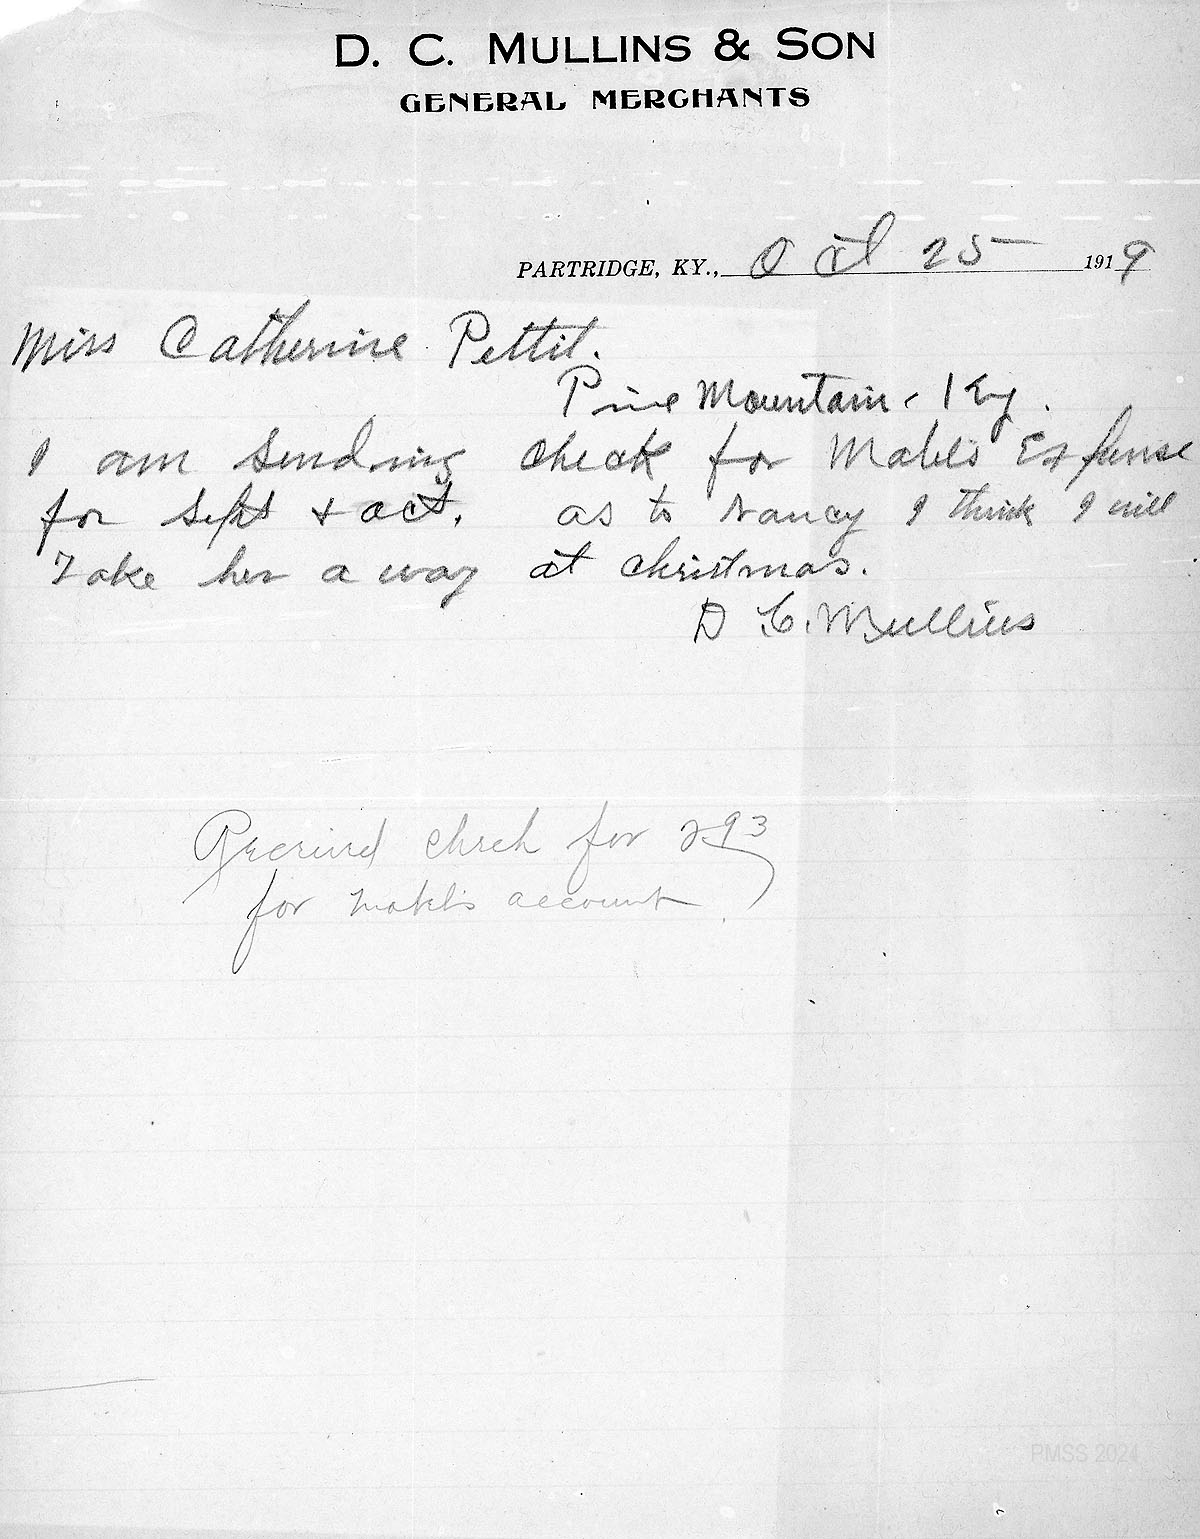 D. C. MULLINS & SON
GENERAL MERCHANTS
PARTRIDGE, KY., Oct 25 1919
Miss Catherine Pettit.
Pine Mountain, Ky.
I am sending check for Mabels Expense
for Sept & oct. as to Nancy I think I will
Take her a way at christmas.
D C. Mullins
Received check for 293
for Mabel's account.
PMSS 2024